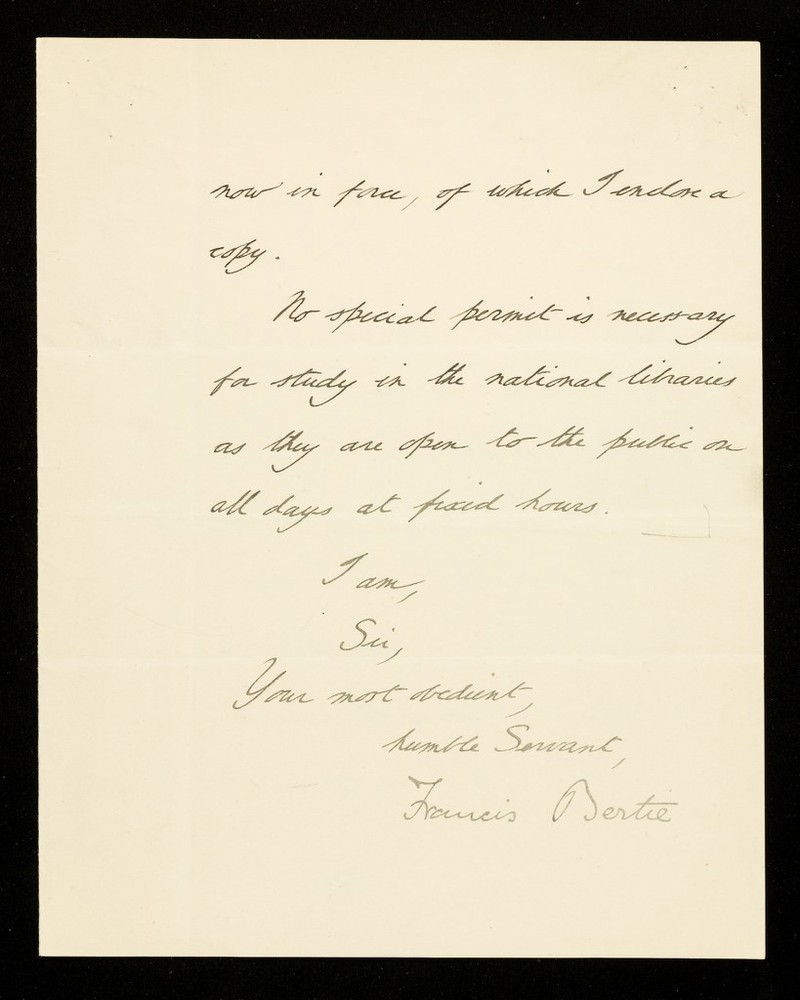 now in force, of which I enclose a
copy.
No special permit is necessary
for study in the national libraries
as they are open to the public on
all days at fixed hours.
I am,
Sir,
Your most obedient,
humble Servant,
Francis Bertie